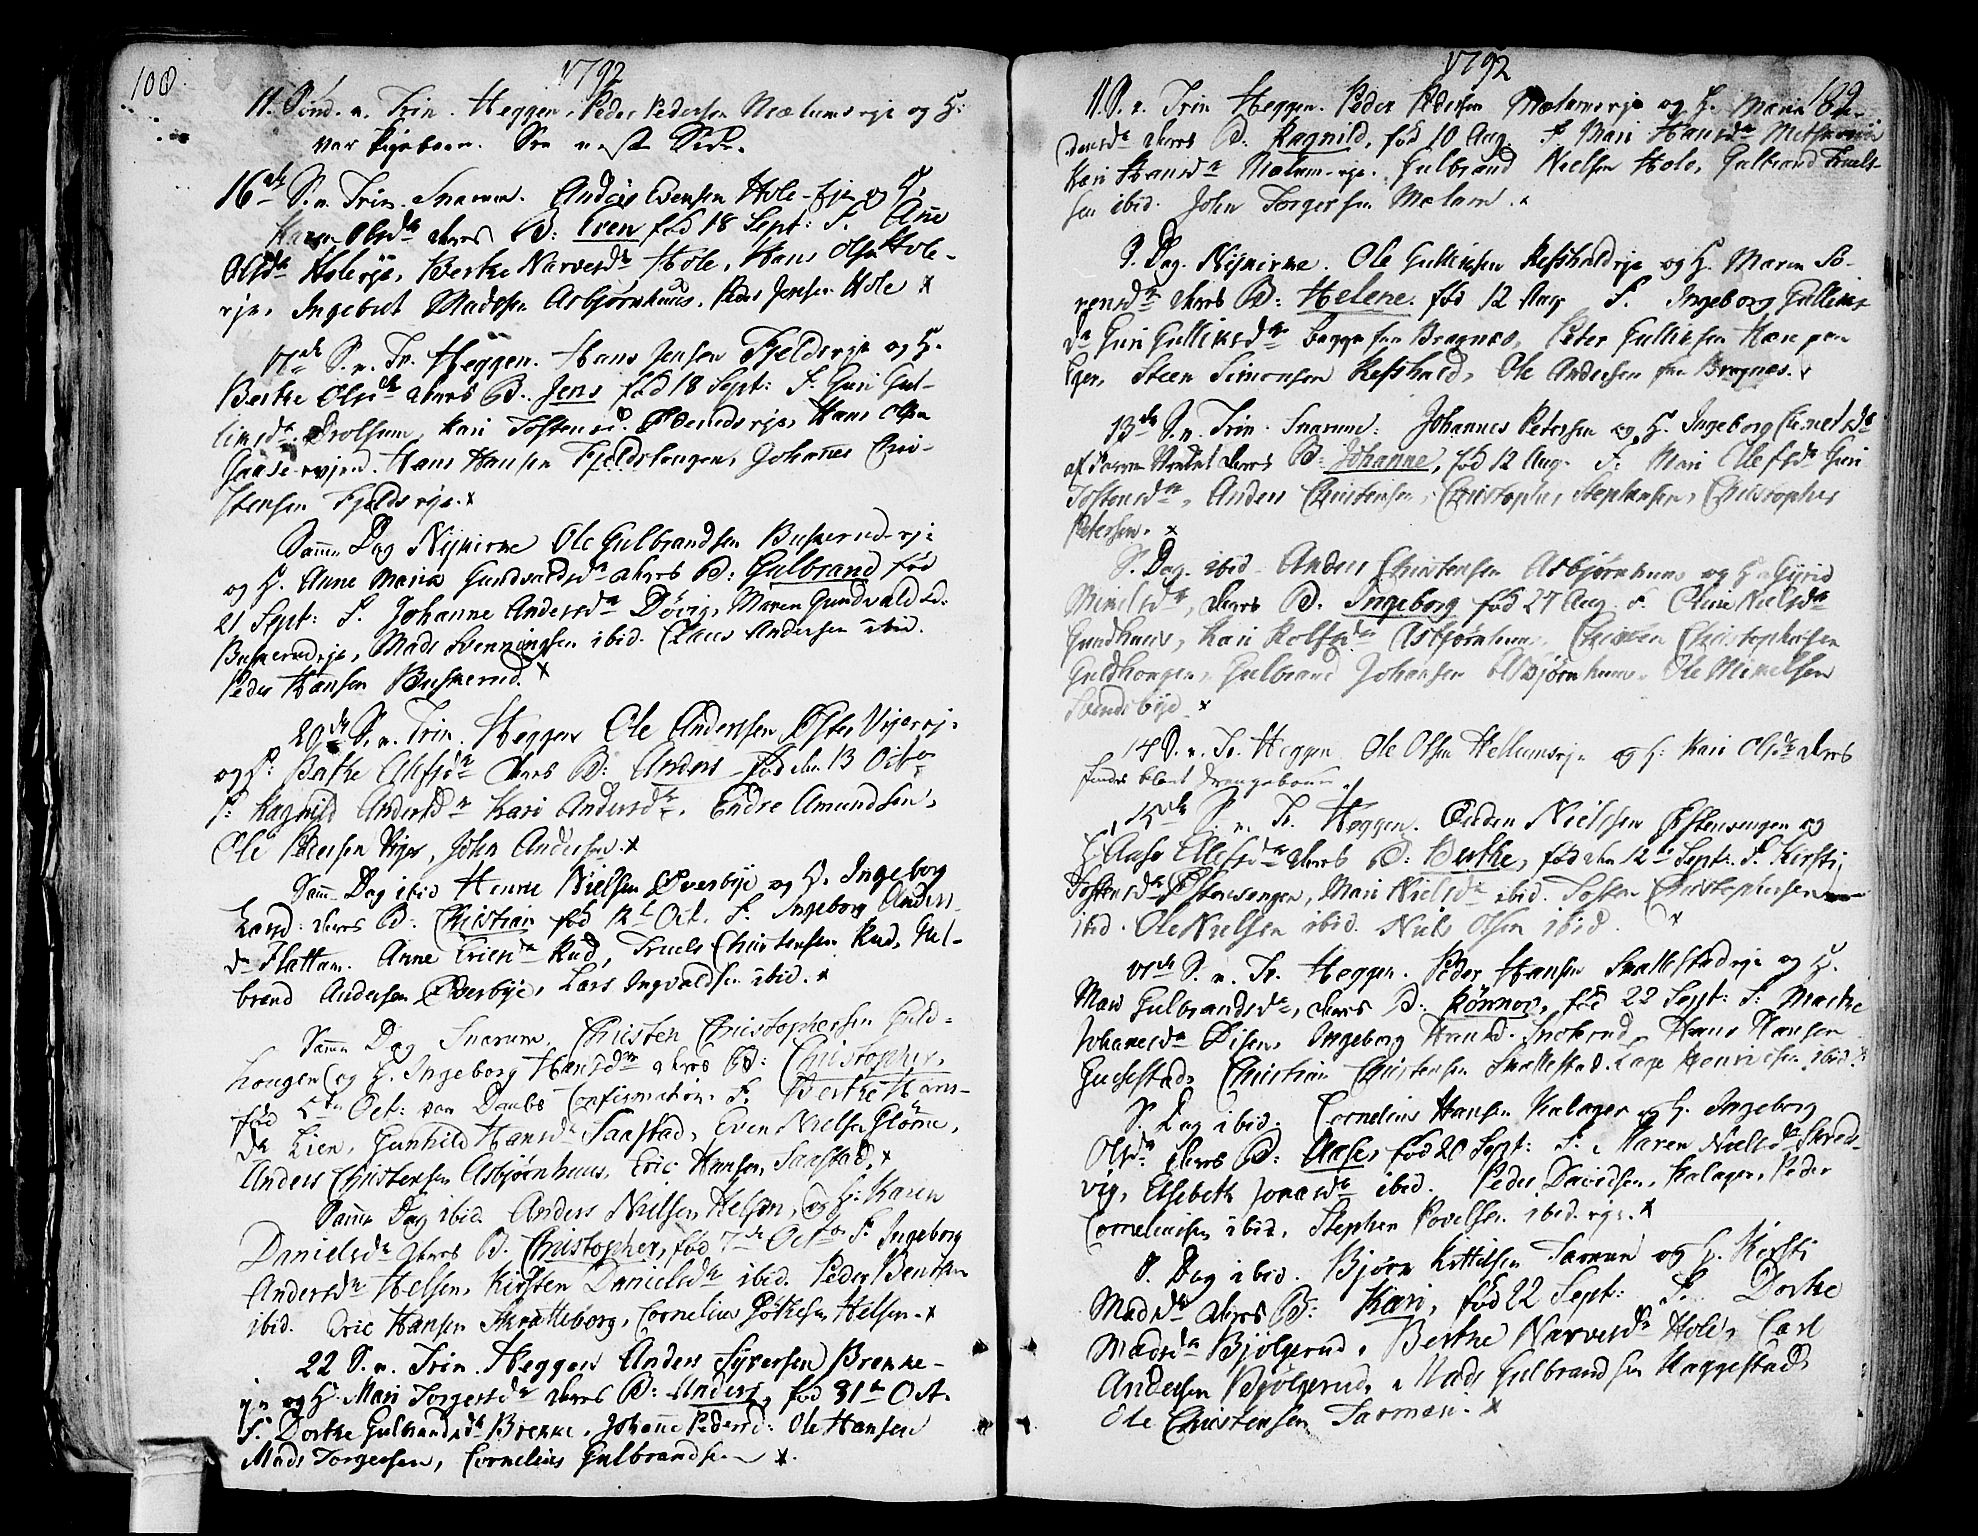 100
1792
11. Sønd. n. Trin. Heggen. Peder Pedersen Mælumseje og H:
var Pigebarn. See næste Side.
16de S. n. Trin. Snarum. Anders Evensen Hole-eje og H.
Karen Olsdr deres B: Even fød 18 Sept: F. Anne
Olsdr Holeeje, Berthe Narvesdr Hole, Hans Olsen Hole-
eje, Ingebret Madssen Asbjørnhuus, Peder Jensen Hole x
17de S. n. Tr. Heggen. Hans Jensen Fjeldseje og H.
Berthe Olsdr deres B. Jens fød 18 Sept: F. Guri Gul-
liksdr Drolsum, Kari Tostensd. eje, Hans Olsen
Gaase Hans Hansen Fjeldstengen, Johannes Chri-
stensen Fjeldseje. x
Samme Dag Nykirke Ole Gulbrandsen Buskerud-eje
og H. Anne Maria Gundvaldsdr deres B: Gulbrand fød
21 Sept: F. Johanne Andersdr Døvig, Maren Gundvaldsd:
Buskerudeje, Mads Svenningsen ibid. Claus Andersen ibid.
Peder Hansen Buskerud. x
20de S. n. Trin. Heggen Ole Andersen Øster Vigereje
og H: Berthe Olefsdr deres B: Anders fød den 13 Octbr
F: Ragnild Andersdr Kari Andersdr. Endre Amundsen,
Ole Pedersen Viger, John Andersen. x
Samme Dag ibid Henric Nielsen Øverbye og H. Ingeborg
Larsd: deres B: Christian fød 12t Oct. F. Ingeborg Anders-
dr Flattum. Anne Ericsdr Rud, Truels Christensen Rud, Gul-
brand Andersen Øverbye, Lars Ingvaldsen ibid. x
Samme Dag Snarum. Christen Christophersen Guld-
hougen og H. Ingeborg Hansdr deres B: Christopher,
fød 5te Oct: paa Daabs Confirmation. F. Berthe Hans-
dr Lien, Gunhild Hansdr Saastad, Even Nielsen Glørne,
Anders Christensen Asbjørnhuus, Eric Hansen Saastad. x
Samme Dag ibid. Anders Nielsen Helsen, og H: Karen
Danielsdr deres B. Christopher, fød 7de Octbr F. Ingeborg
Andersdr Helsen, Kirsten Danielsdr ibid. Peder Bentsen
ibid. Eric Hansen Skratteborg, Cornelius Helsen. x
22 S. n. Trin. Heggen Anders Syversen Brekke-
eje og H. Mari Torgersdr deres B: Anders, fød 31te Oct.
F. Dorthe Gulbrandsdr Brekke, Johanne Pedersd: Ole Hansen
Mads Torgersen, Cornelius Gulbrandsen x.
1792
11. S. n. Trin Heggen. Peder Pedersen Mælumseje og H. Maria
deres B: Ragnild, fød 10 Aug. F Mari Hansdr
Kari Hansdr Mælumeje. Gulbrand Nielsen Hole, Gulbrand Truels-
sen ibid. John Torgersen Mælum. x
S. Dag. Nykirke. Ole Gulliksen Refshaldeje og H. Maren So-
rensdr deres B: Helene. fød 12 Aug F. Ingeborg Gulliks
dr Guri Gulliksdr begge fra Bragnes, Peter Gulliksen Hære paa
Eger, Steen Simonsen Refshald, Ole Andersen fra Bragnes. x
13de S. n. Trin. Snarum: Johannes Petersen og H. Ingeborg
deres B: Johanne, fød 12 Aug. F: Mari Olefsdr Guri
Tostensdr, Anders Christensen, Christopher Stephensen, Christopher
Petersen. x
S. Dag. ibid. Anders Christensen Asbjørnhuus og H. Sigrid
Mikelsdr, deres B. Ingeborg fød 27 Aug F. Nielsdr
Gundhuus, Kari Rolfsdr Asbjørnhuus, Christen Christophersen
Guldhougen, Gulbrand Johansen Asbjørnhuus. Ole Mikelsen
x
14 S. n. Tr. Heggen Ole Olsen Hellumseje og H: Kari Olsdr deres
findes blant Drengebørn
15de S. n. Tr. Heggen. Nielsen Østenengen og
H Aase Ellefsdr deres B: Berthe, fød den 12te Sept: F. Kirsti
Tostensdr Østenengen, Mari Nielsdr ibid. Tosten Christophersen
ibid. Ole Nielsen ibid. Niels Olsen ibid. x
17de S. n. Tr. Heggen. Peder Hansen Smallestadeje og H.
Mari Gulbrandsdr, deres B: Rønnov, fød 22 Sept: F: Marthe
Johannesdr Disen, Ingeborg Hansd. Hans Hansen
Christian Christensen Smallestad. Lage Henricsen ibid. x
S. Dag ibid. Cornelius Hansen Kalager og H. Ingeborg
Olsdr deres B: Aase, fød 20 Sept: F. Karen Nielsdr Skreds-
vig, Elsebeth Jonasdr ibid. Peder Davidsen, Kalager, Peder
Corneliusen ibid, Stephen Povelsen ibid. eje. x
S. Dag ibid. Bjørn Kittilsen Tarmen og H. Kirsti
Madsdr deres B: Kari, fød 22 Sept: F. Dorthe
Madsdr Bjølgerud, Berthe Narvesdr Hole, Carl
Andersen Bjølgerud, Mads Gulbrandsen Haggestad
Ole Christensen Tarmen. x